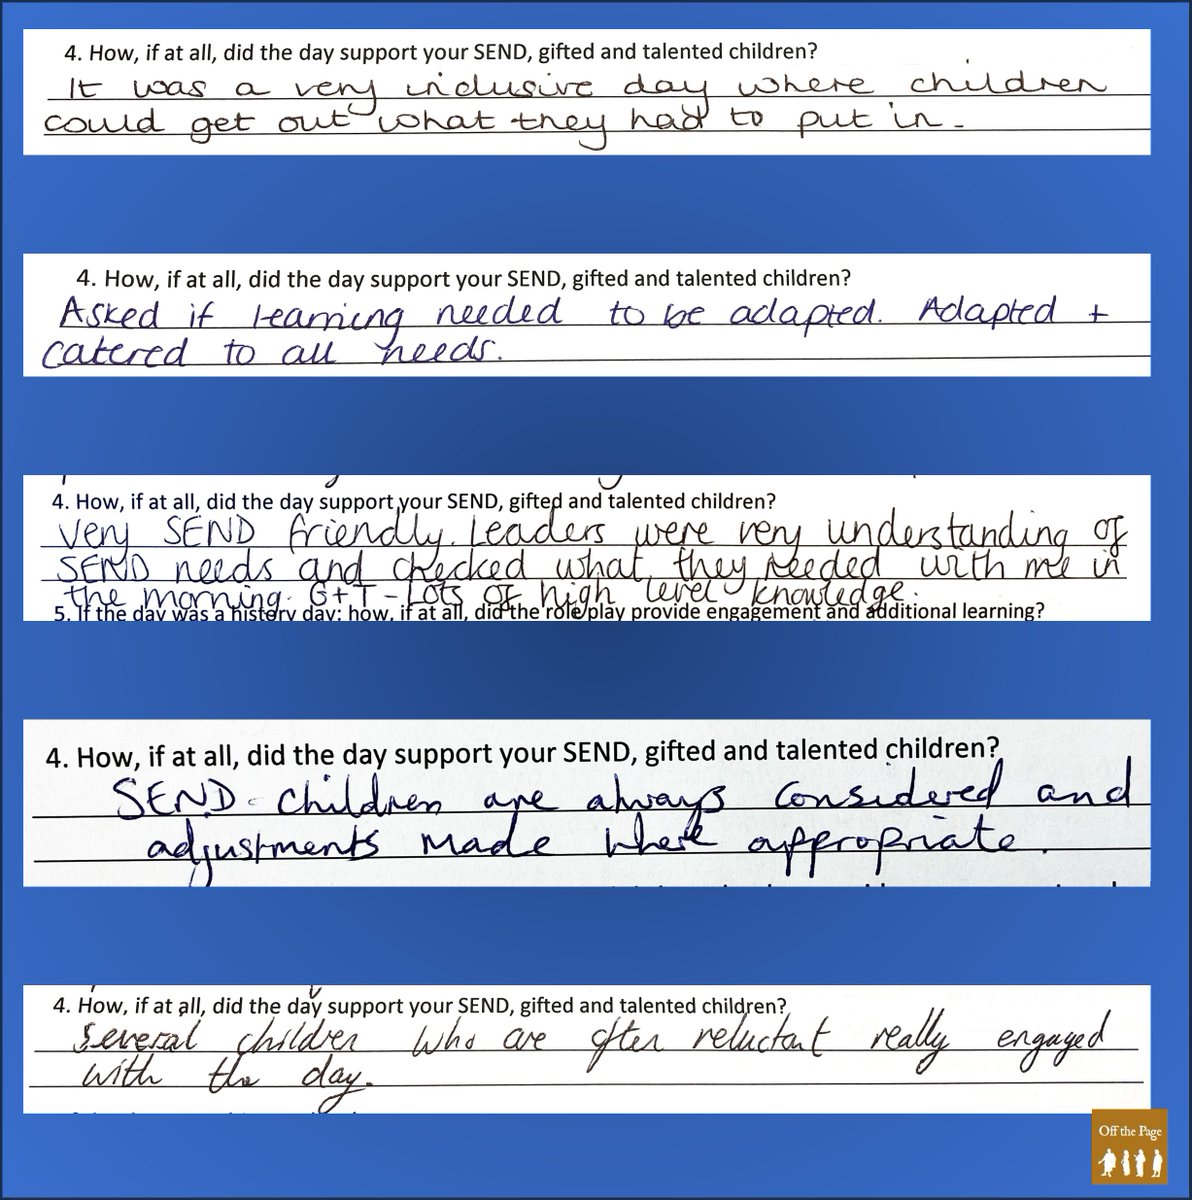 4. How, if at all, did the day support your SEND, gifted and talented children?
It was a very inclusive day where children
could get out what they had to put in.
4. How, if at all, did the day support your SEND, gifted and talented children?
Asked if learning needed to be adapted. Adapted +
catered to all needs.
4. How, if at all, did the day support your SEND, gifted and talented children?
Very SEND friendly. Leaders were very understanding of
SEND needs and checked what they needed with me in
the morning. G+T - Lots of high level knowledge.
5. If the day was a history day: how, if at all, did the role play provide engagement and additional learning?
4. How, if at all, did the day support your SEND, gifted and talented children?
SEND children are always considered and
adjustments made where appropriate.
4. How, if at all, did the day support your SEND, gifted and talented children?
Several children who are often reluctant really engaged
with the day.
Off the Page